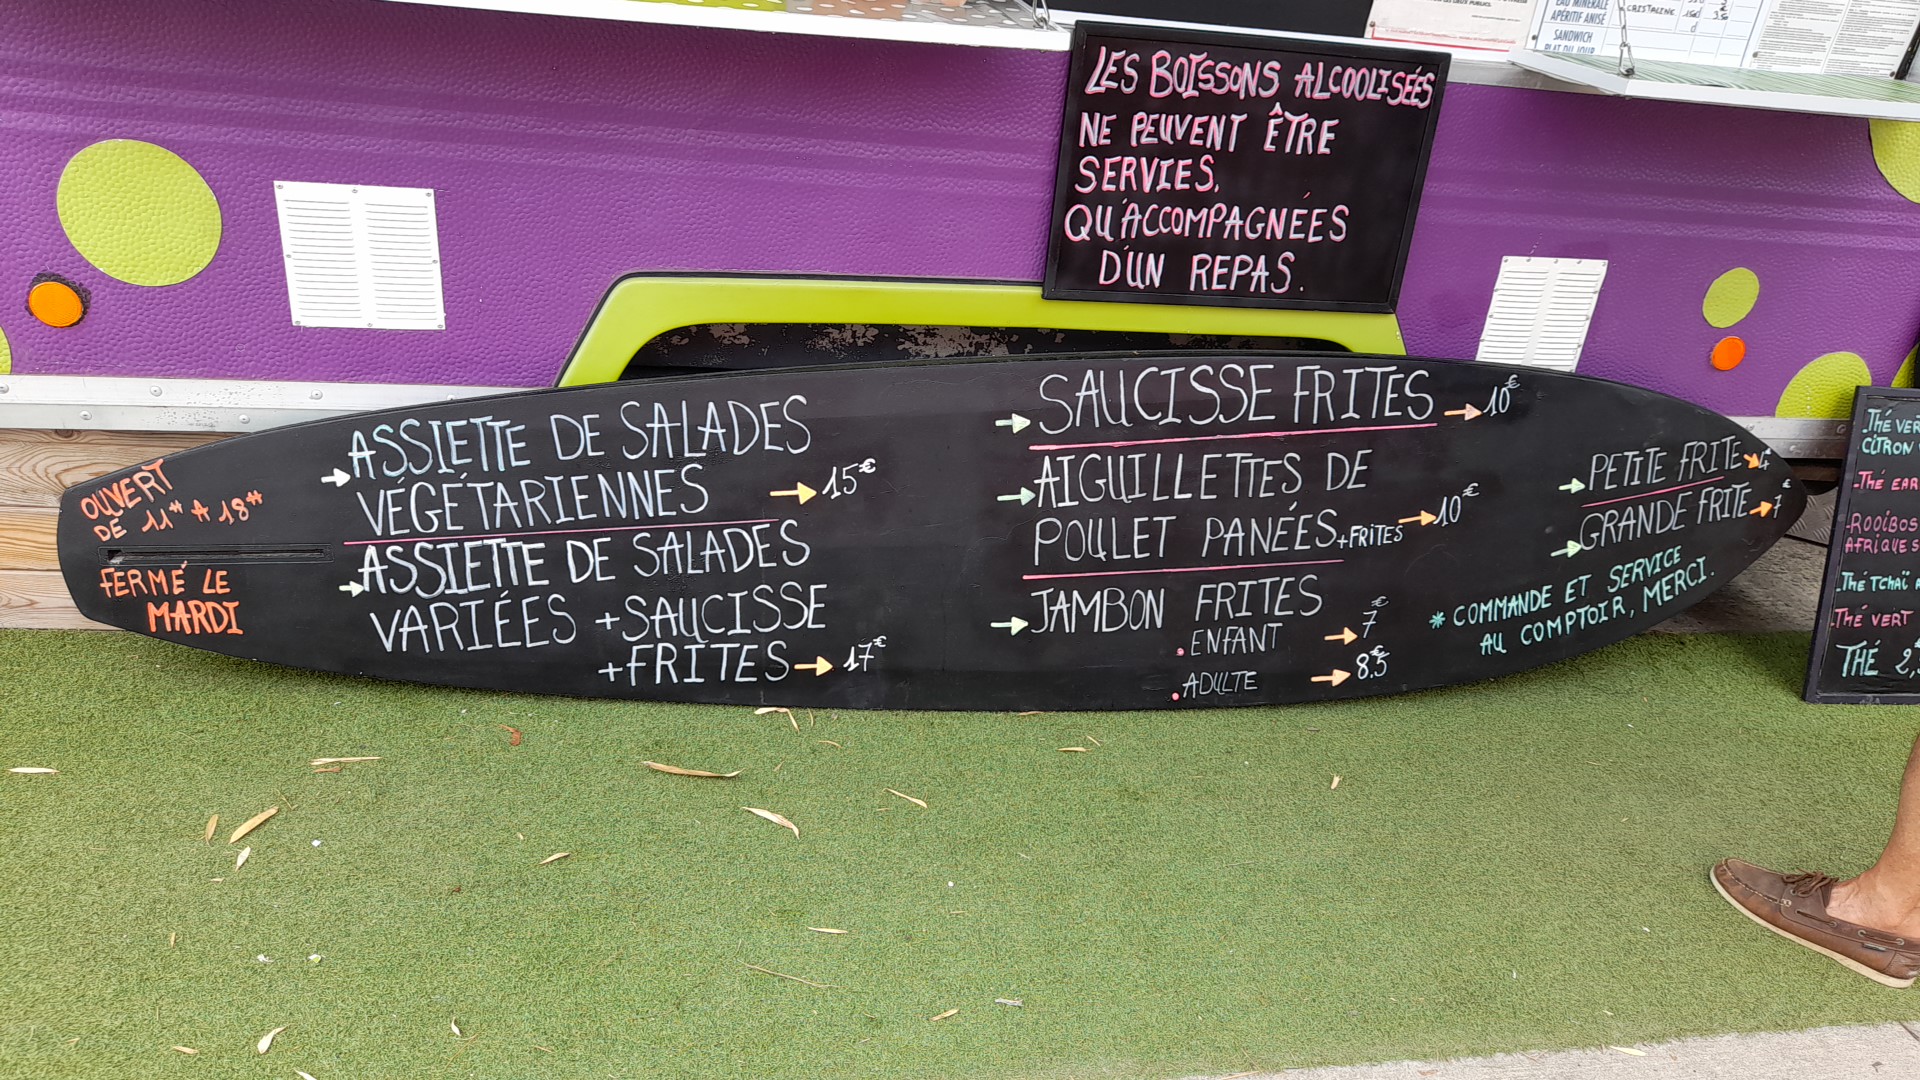 LES BOISSONS ALCOOLISÉES
NE PEUVENT ÊTRE
SERVIES,
QU'ACCOMPAGNÉES
D'UN REPAS.
EAU MINÉRALE
APÉRITIF ANISÉ
SANDWICH
PLAT DU JOUR
CRISTALINE
OUVERT
DE 11H A 18H
FERMÉ LE
MARDI
ASSIETTE DE SALADES
VÉGÉTARIENNES → 15€
ASSIETTE DE SALADES
VARIÉES + SAUCISSE
+ FRITES → 17€
SAUCISSE FRITES → 10€
AIGUILLETTES DE
POULET PANÉES + FRITES → 10€
JAMBON FRITES
. ENFANT → 7€
. ADULTE → 8.5€
PETITE FRITE → 4€
GRANDE FRITE → 7€
* COMMANDE ET SERVICE
AU COMPTOIR, MERCI.
THÉ VER
CITRON
-THÉ EAR
-ROOÏBOS
AFRIQUE S
-THÉ TCHAÏ
-THÉ VERT
THÉ 2,